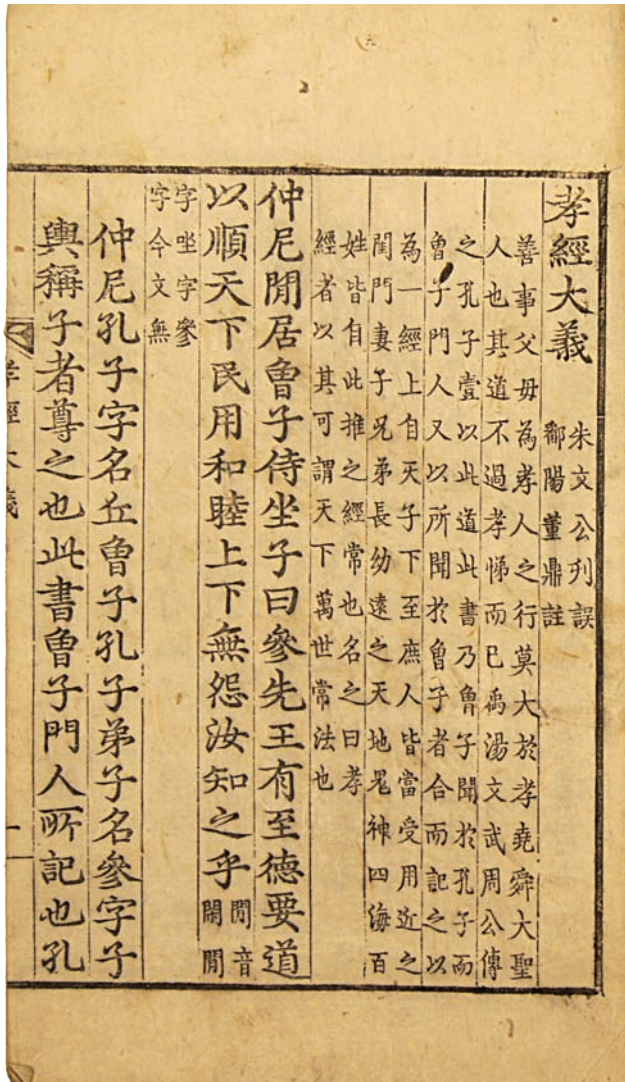 孝經大義
朱文公刊誤
鄱陽董鼎註
善事父母為孝人之行莫大於孝堯舜大聖
人也其道不過孝悌而已禹湯文武周公傳
之孔子壹以此道此書乃曾子聞於孔子而
曾子門人又以所聞於曾子者合而記之以
為一經上自天子下至庶人皆當受用近之
閨門妻子兄弟長幼遠之天地鬼神四海百
姓皆自此推之經常也名之曰孝
經者以其可謂天下萬世常法也
仲尼閒居曾子侍坐子曰參先王有至德要道
以順天下民用和睦上下無怨汝知之乎
閒音
閑閒
字坐字參
字今文無
仲尼孔子字名丘曾子孔子弟子名參字子
輿稱子者尊之也此書曾子門人所記也孔
孝經大義 一